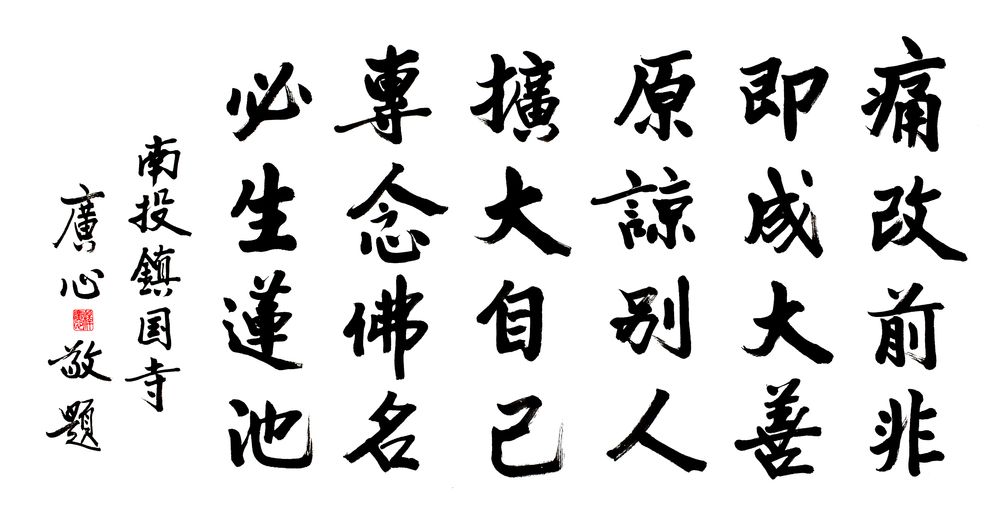 痛改前非
即成大善
原諒别人
擴大自己
專念佛名
必生蓮池
南投鎮国寺
廣心敬題